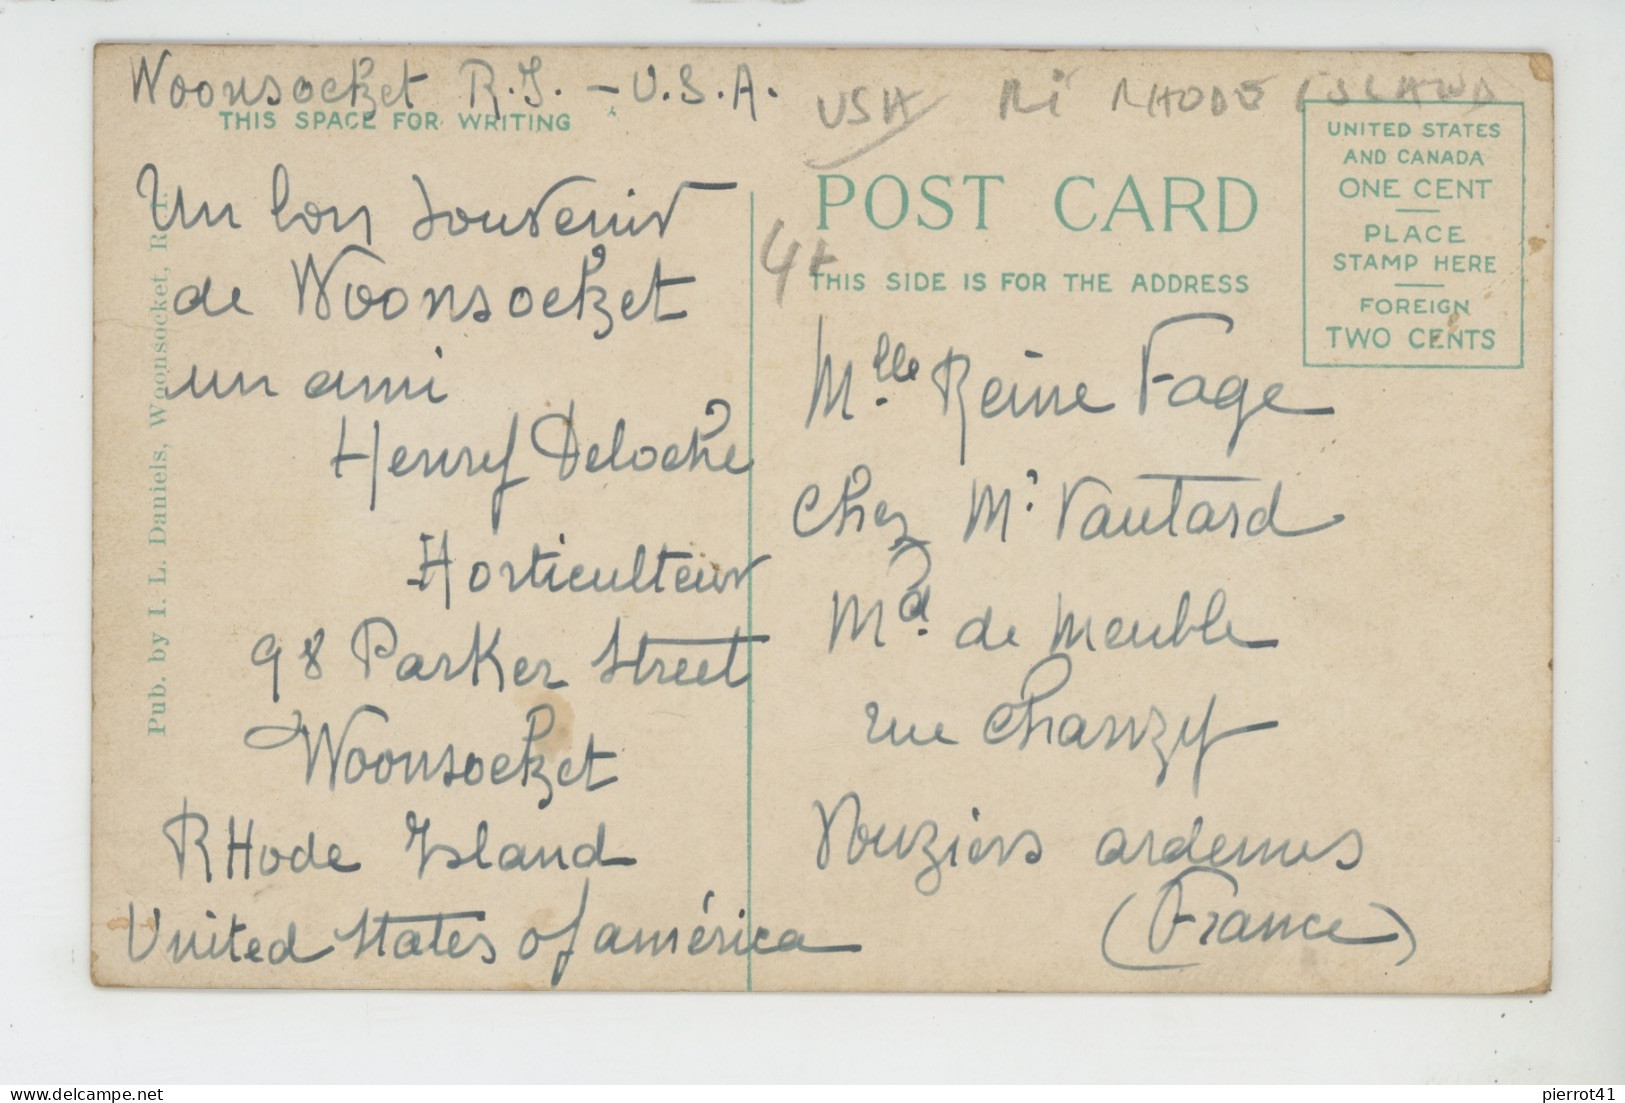 Woonsocket R.I. - U.S.A.
THIS SPACE FOR WRITING
Un bon souvenir
de Woonsocket
un ami
Henry Deloche
Horticulteur
98 Parker Street
Woonsocket
RHode Island
United States of américa
Pub. by I. L. Daniels, Woonsocket, R. I.
USA RI RHODE ISLAND
POST CARD
4+
THIS SIDE IS FOR THE ADDRESS
UNITED STATES
AND CANADA
ONE CENT
PLACE
STAMP HERE
FOREIGN
TWO CENTS
Mlle. Reine Fage
Chez Mr Vautard
Md. de Meuble
rue Chanzy
Vouziers ardennes
(France)
pierrot41